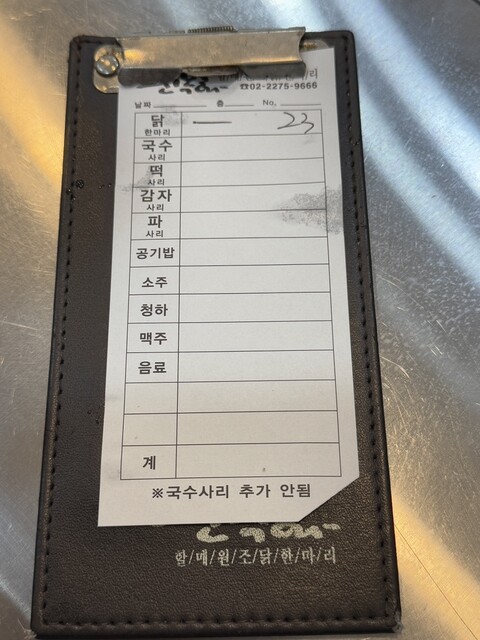 ☎02-2275-9666
날짜 층 No.
닭 한마리 — 23
국수 사리
떡 사리
감자 사리
파 사리
공기밥
소주
청하
맥주
음료
계
※국수사리 추가 안됨
할/매/원/조/닭/한/마/리